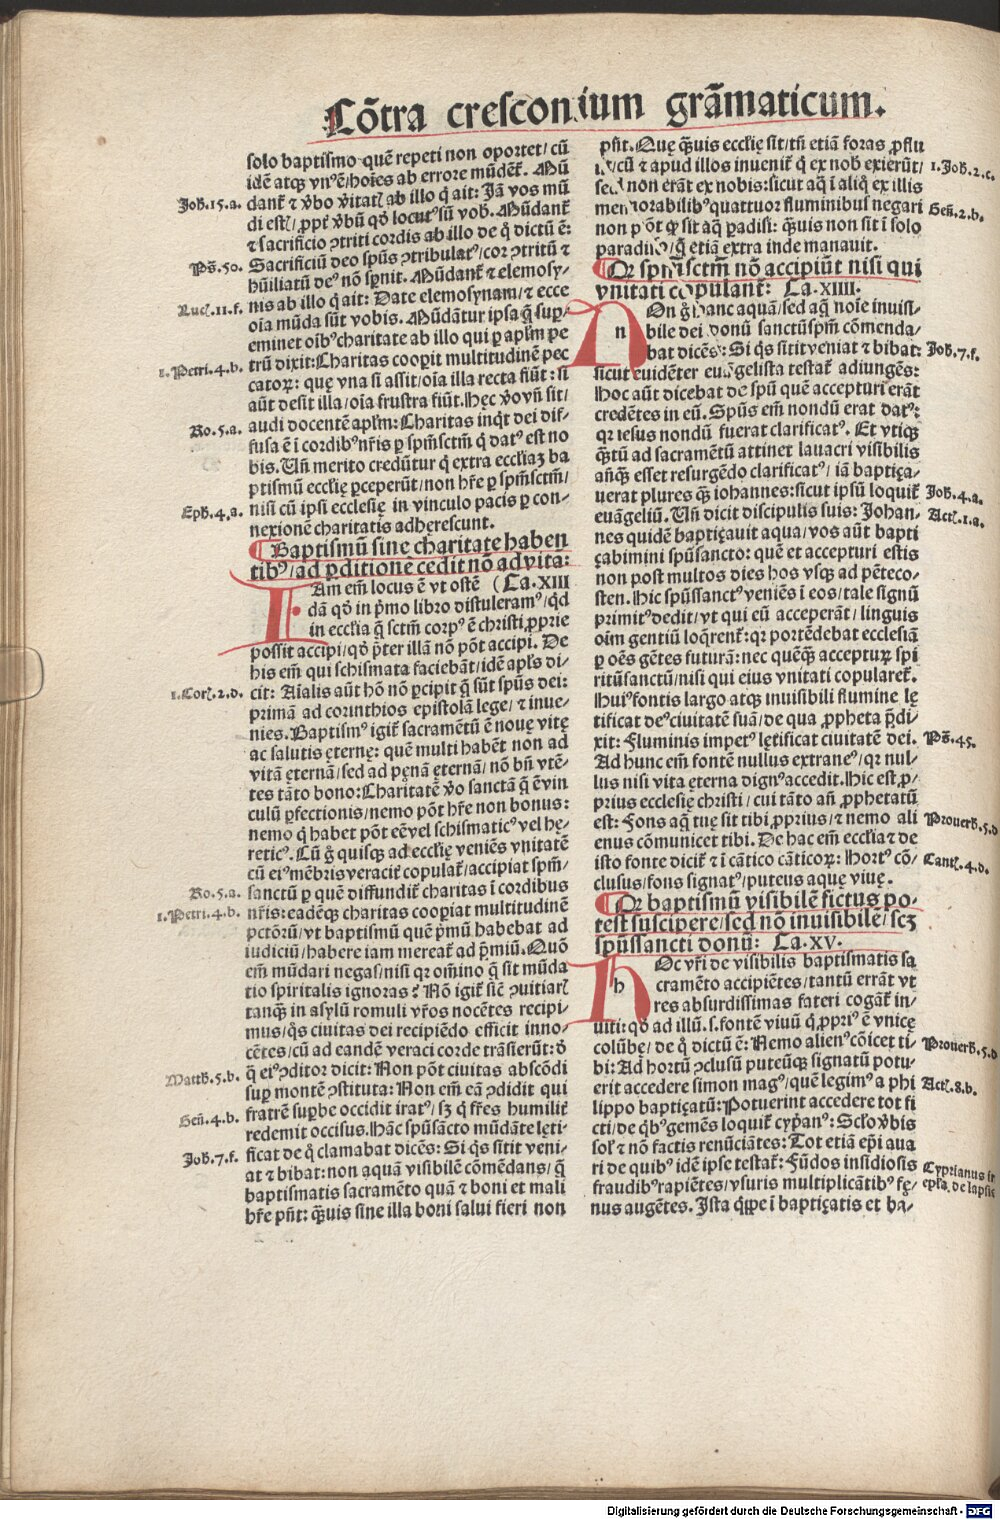 Cōtra cresconium grāmaticum.
solo baptismo quē repeti non oportet/cū
idē atqꝫ vnꝰ ē/hoīes ab errore mūdēt̄. Mū
dant̄ ⁊ v̄bo v̄itatꝭ ab illo q̄ ait: Jā vos mū
di estꝭ/ꝓpt̄ v̄bū qđ locutꝰ sū vob̄. Mūdant̄
⁊ sacrificio ꝯtriti cordis ab illo de q̄ dictū ē:
Sacrificiū deo spūs ꝯtribulatꝰ/cor ꝯtritū ⁊
hūiliatū deꝰ nō sꝑnit. Mūdant̄ ⁊ elemosy-
nis ab illo q̄ ait: Date elemosynam/⁊ ecce
oīa mūda sūt vobis. Mūdātur ipsa q̄ suꝑ-
eminet oībꝰ charitate ab illo qui ꝑ apl̄m pe
trū dixit: Charitas cooꝑit multitudinē pec
catoꝝ: quę vna si assit/oīa illa recta fiūt: si
aūt desit illa/oīa frustra fiūt. Hęc v̄o vn̄ sit/
audi docentē apl̄m: Charitas inq̄t dei dif-
fusa ē ī cordibꝰ nr̄is ꝑ spm̄sctm̄ q̄ datꝰ est no
bis. Un̄ merito credūtur q̄ extra eccl̄iaꝫ ba
ptismū eccl̄ię ꝑceperūt/non hr̄e ꝑ spm̄sctm̄/
nisi cū ipsi ecclesię in vinculo pacis ꝑ con-
nexionē charitatis adherescunt.
Baptismū sine charitate haben
tibꝰ/ad ꝑditionē cedit nō ad vitā:
Am em̄ locus ē vt ostē (Ca. XIII
dā qđ in p̄mo libro distuleramꝰ/qđ
in eccl̄ia q̄ sctm̄ corpꝰ ē christi/ꝓprie
possit accipi/qđ p̄ter illā nō pōt accipi. De
his em̄ qui schismata faciebāt/idē apl̄s di-
cit: Aīalis aūt hō nō ꝑcipit q̄ sūt spūs dei:
primā ad corinthios epistolā lege/⁊ inue-
nies. Baptismꝰ igit̄ sacramētū ē nouę vitę
ac salutis ęternę: quē multi habēt non ad
vitā ęternā/sed ad pęnā ęternā/nō bn̄ vtē-
tes tāto bono: Charitatē v̄o sanctā q̄ ē vin
culū ꝑfectionis/nemo pōt hr̄e non bonus:
nemo q̄ habet pōt eē vel schismaticꝰ vel hę-
reticꝰ. Cū g̊ quisqꝫ ad eccl̄ię veniēs vnitatē
cū eiꝰ mēbris veracit̄ copulat̄/accipiat spm̄-
sanctū ꝑ quē diffundit̄ charitas ī cordibus
nr̄is: eadēqꝫ charitas cooꝑiat multitudinē
pctōrū/vt baptismū quē p̄mū habebat ad
iudiciū/habere iam mereat̄ ad p̄miū. Quō
em̄ mūdari negas/nisi qr oīno q̄ sit mūda
tio spiritalis ignoras? Nō igit̄ sīc ꝯuitiarꝭ
tanqꝫ in asylū romuli vr̄os nocētes recipi-
mus/q̄s ciuitas dei recipiēdo efficit inno-
cētes/cū ad eandē veraci corde trāsierūt: đ
q̄ eiꝰ ꝯditor dicit: Non pōt ciuitas abscōdi
suꝑ montē ꝯstituta: Non em̄ eā ꝯdidit qui
fratrē suꝑbe occidit iratꝰ/sꝫ q̄ fr̄es humilit̄
redemit occisus. Hāc spūsācto mūdāte lęti-
ficat de q̄ clamabat dicēs: Si q̄s sitit veni-
at ⁊ bibat: non aquā visibilē cōmēdans/q̄
baptismatis sacramēto quā ⁊ boni et mali
hr̄e pn̄t: qꝫuis sine illa boni salui fieri non
Joh̄. 15. a.
Ps̄. 50.
Lucꝭ. 11. f.
1. Petri. 4. b.
Ro. 5. a.
Eph̄. 4. a.
1. Corꝭ. 2. d.
Ro. 5. a.
1. Petri. 4. b.
Matth̄. 5. b.
Gen̄. 4. b.
Joh̄. 7. f.
pn̄t. Quę qꝫuis eccl̄ię sit/tn̄ etiā foras ꝓflu
cū ⁊ apud illos inuenit̄ q̄ ex nob̄ exierūt/
sed non erāt ex nobis: sicut aq̄ ī aliq̄ ex illis
memorabilibꝰ quattuor fluminibus negari
non pōt qr sit aq̄ ꝑadisi: qꝫuis non sit ī solo
paradiso/q̄ etiā extra inde manauit.
Qr spm̄sctm̄ nō accipiūt nisi qui
vnitati copulant̄: Ca. XIIII.
n
On g̊ hanc aquā/sed aq̄ noīe inuisi-
bile dei donū sanctūspm̄ cōmenda-
bat dicēs: Si q̄s sitit veniat ⁊ bibat:
sicut euidēter euāgelista testat̄ adiungēs:
Hoc aūt dicebat de spū quē accepturi erāt
credētes in eū. Spūs em̄ nondū erat datꝰ:
qr iesus nondū fuerat clarificatꝰ. Et vtiqꝫ
qꝫtū ad sacramētū attinet lauacri visibilis
an̄qꝫ esset resurgēdo clarificatꝰ/iā baptiça-
uerat plures qꝫ iohannes: sicut ipsū loquit̄
euāgeliū. Un̄ dicit discipulis suis: Johan-
nes quidē baptiçauit aqua/vos aūt bapti
çabimini spūsancto: quē et accepturi estis
non post multos dies hos vsqꝫ ad pēteco-
sten. Hic spūssanctꝰ veniēs ī eos/tale signū
primitꝰ dedit/vt qui eū acceperāt/linguis
oīm gentiū loq̄rent̄: qr portēdebat ecclesiā
ꝑ oēs gētes futurā: nec quēqꝫ accepturꝝ spi
ritūsanctū/nisi qui eius vnitati copularet̄.
Huiꝰ fontis largo atqꝫ inuisibili flumine lę
tificat deꝰ ciuitatē suā/de qua ꝓpheta p̄di-
xit: Fluminis impetꝰ lętificat ciuitatē dei.
Ad hunc em̄ fontē nullus extraneꝰ/qr nul-
lus nisi vita ęterna dignꝰ accedit. Hic est ꝓ-
prius ecclesię christi/cui tāto an̄ ꝓphetatū
est: Fons aq̄ tuę sit tibi ꝓprius/⁊ nemo ali
enus cōmunicet tibi. De hac em̄ eccl̄ia ⁊ de
isto fonte dicit̄ ⁊ ī cātico cāticoꝝ: Hortꝰ cō-
clusus/fons signatꝰ/puteus aquę viuę.
Qr baptismū visibilē fictus po-
test suscipere/sed nō inuisibilē/scꝫ
spūssancti donū: Ca. XV.
h
Oc vr̄i de visibilis baptismatis sa
cramēto accipiētes/tantū errāt vt
res absurdissimas fateri cogāt̄ in-
uiti: qđ ad illū .s. fontē viuū q̄ ꝓpriꝰ ē vnicę
colūbę/de q̄ dictū ē: Nemo alienꝰ cōicet ti-
bi: Ad hortū ꝯclusū puteūqꝫ signatū potu-
erit accedere simon magꝰ/quē legimꝰ a phi
lippo baptiçatū: Potuerint accedere tot fi
cti/de q̄bꝰ gemēs loquit̄ cyp̄anꝰ: Scl̄o v̄bis
solꝭ ⁊ nō factis renūciātes: Tot etiā ep̄i aua
ri de quibꝰ idē ipse testat̄: Fūdos insidiosis
fraudibꝰ rapiētes/vsuris multiplicātibꝰ fę-
nus augētes. Ista q̄ppe ī baptiçatis et ba-
1. Joh̄. 2. c.
Gen̄. 2. b.
Joh̄. 7. f.
Joh̄. 4. a.
Actꝭ. 1. a.
Ps̄. 45.
Prouerb̄. 5. d
Cantꝭ. 4. d.
Prouerb̄. 5. d
Actꝭ. 8. b.
Cyprianus in
epl̄a. de lapsis
Digitalisierung gefördert durch die Deutsche Forschungsgemeinschaft - DFG